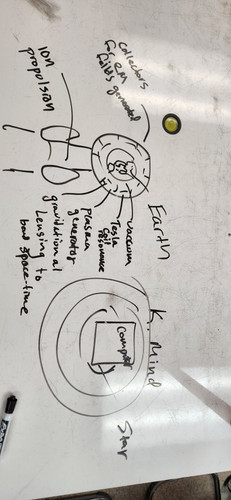 Earth
collectors
for EM
fields generated
Vacuum
Tesla
coil
resonance
Plasma
generator
gravitational
Lensing to
bend space-time
Ion
propulsion
K. Mind
Computer
Star